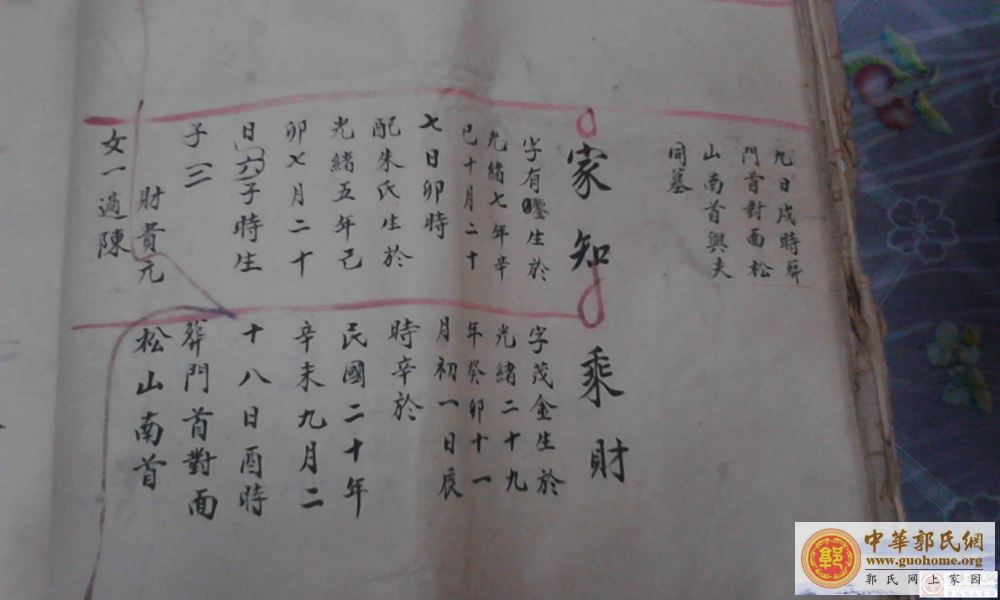 九日戌時葬
門首對面松
山南首與夫
同墓
家知
字有 生於
光緒七年辛
巳十月二十
七日卯時
配朱氏生於
光緒五年己
卯七月二十
六日子時生
子三
財貴元
女一適陳
乘財
字茂金生於
光緒二十九
年癸卯十一
月初一日辰
時辛於
民國二十年
辛未九月二
十八日酉時
葬門首對面
松山南首
中華郭氏網
www.guohome.org
郭氏网上家园